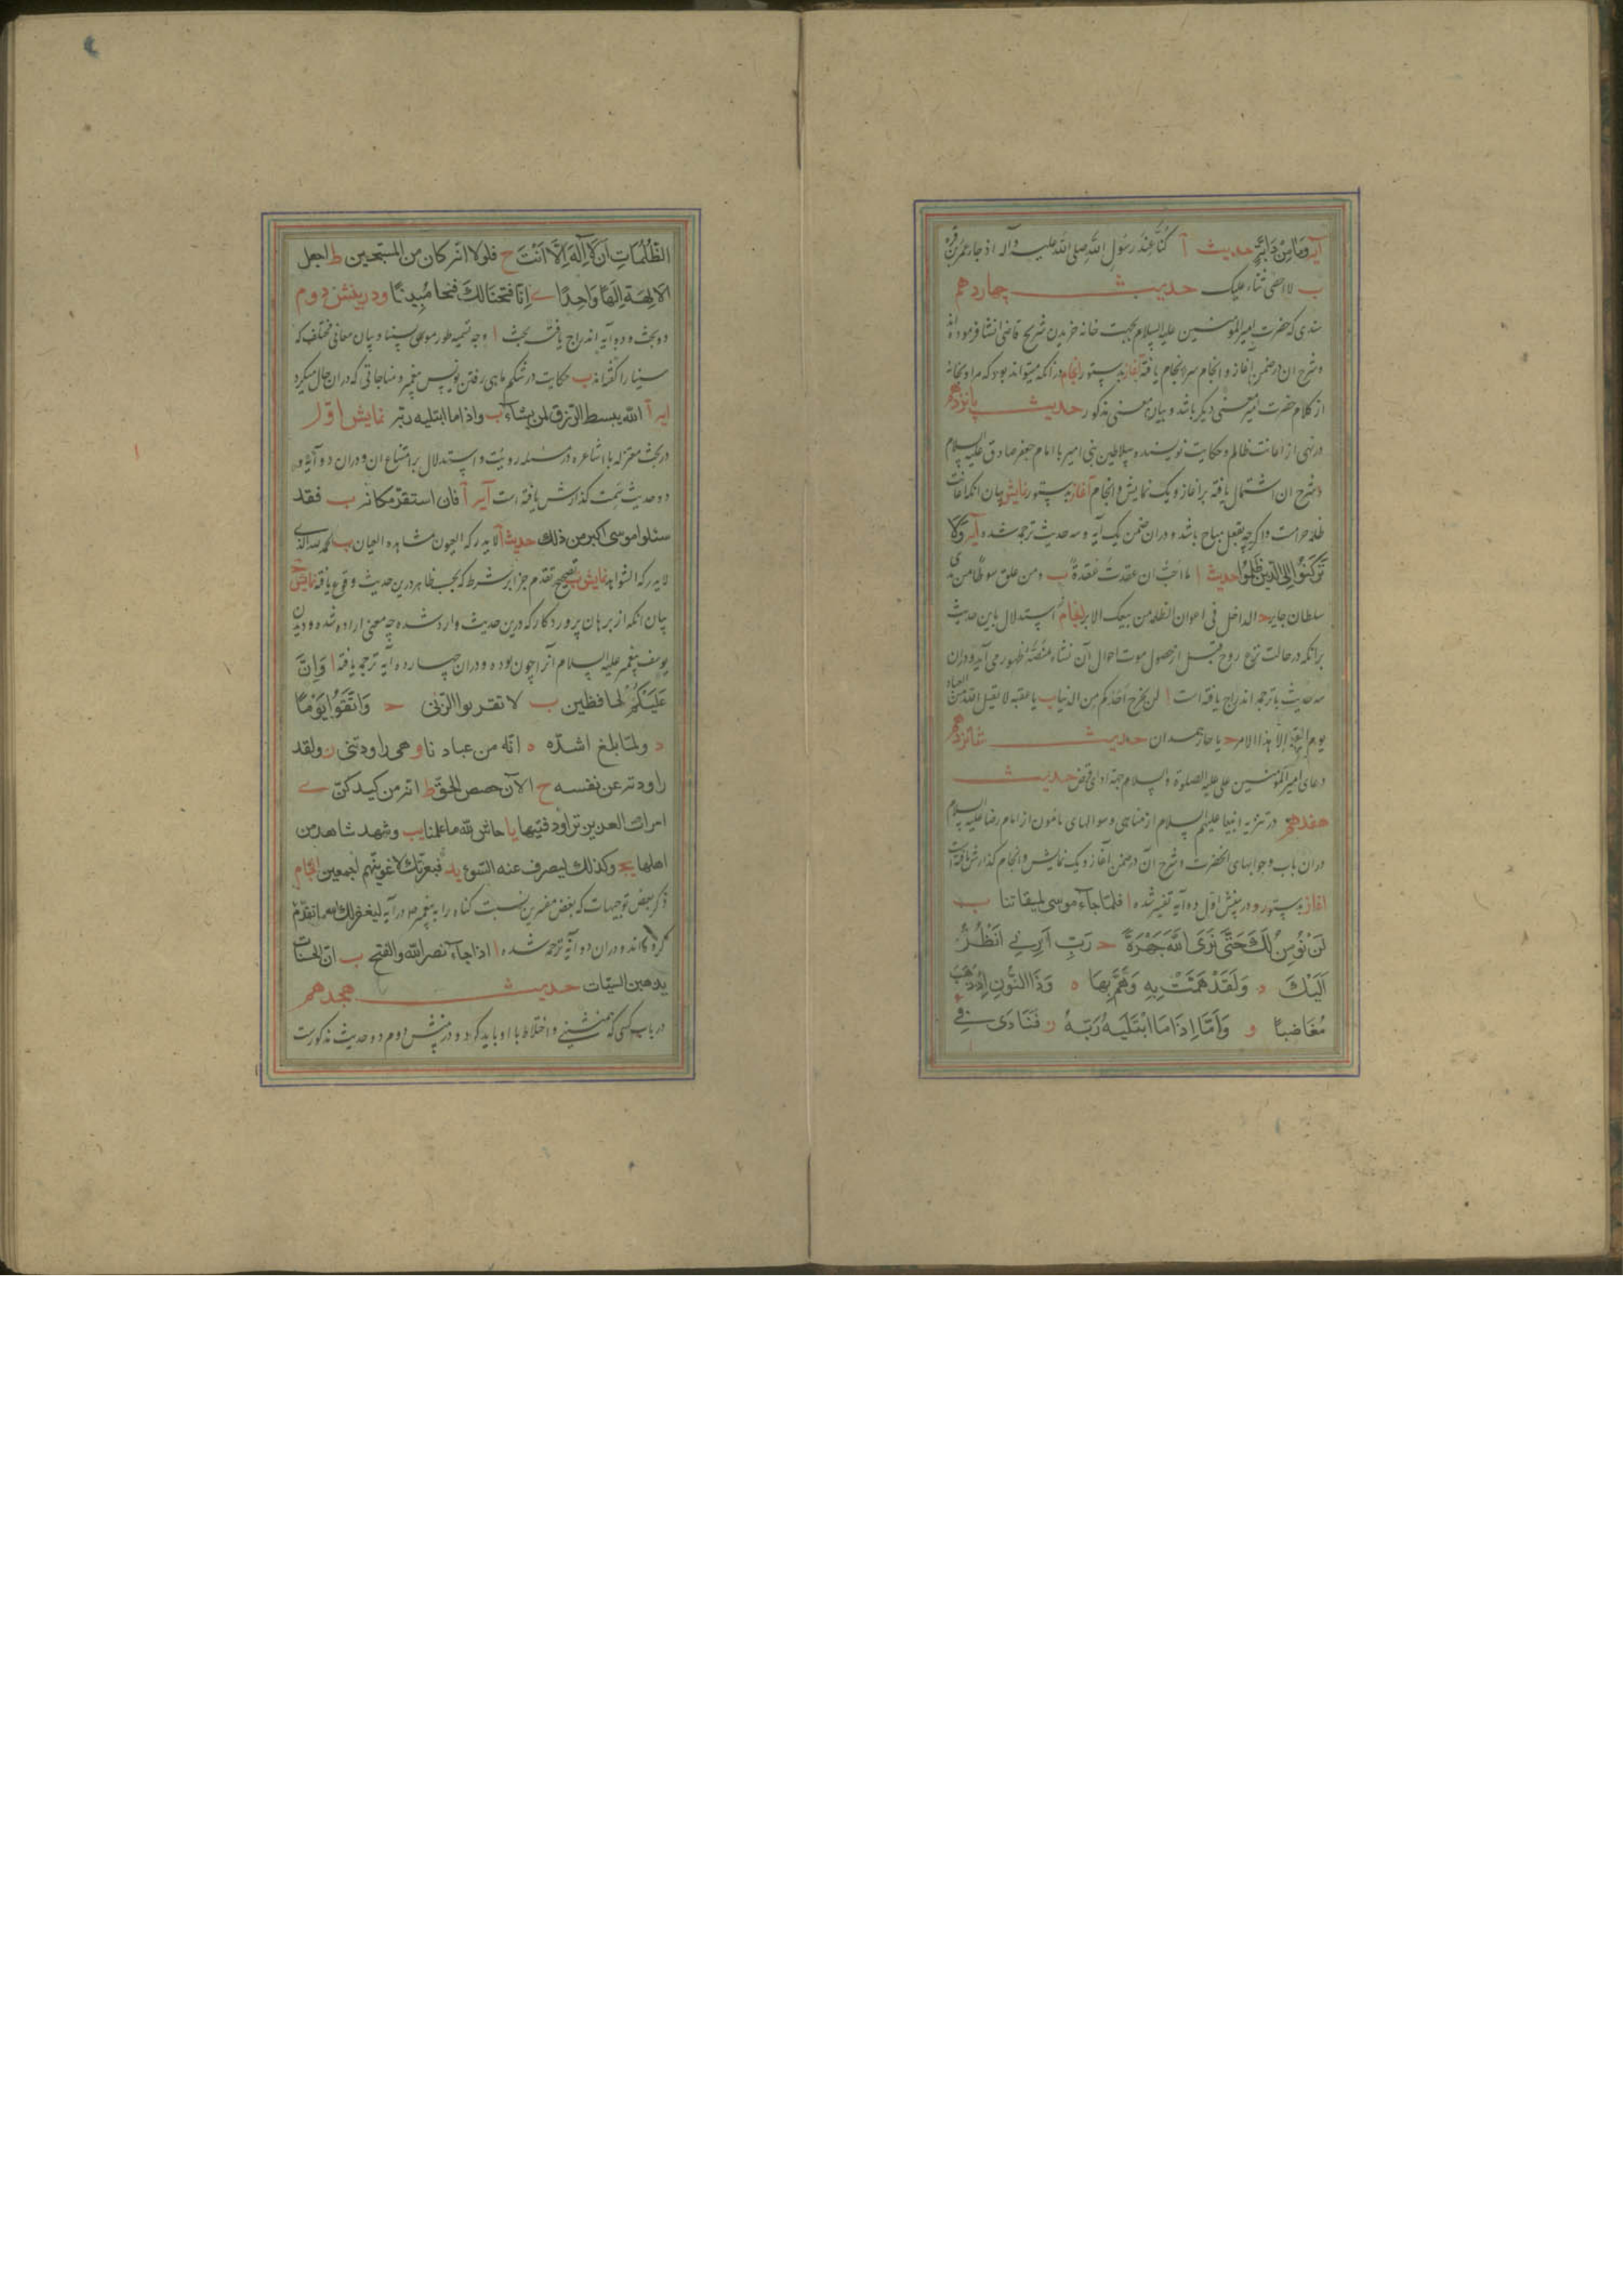 آیه وما من دابة حدیث آ کنا عند رسول الله صلی الله علیه وآله اذ جاء عمر بن قره
ب لا احصی ثناء علیک حدیث چهاردهم
سندی که حضرت امیرالمؤمنین علیه السلام بجهت خانه خریدن شریح قاضی انشا فرموده اند
وشرح ان درضمن آغاز و انجام سرانجام یافته آغاز بدستور انجام در انکه میتواند بود که مراد بخانه
از کلام حضرت امیر معنی دیگر باشد و بیان معنی مذکور حدیث پانزدهم
در نهی از اعانت ظالم و حکایت نویسنده سلاطین بنی امیه با امام جعفر صادق علیه السلام
وشرح ان اشتمال یافته بر اغاز و یک نمایش و انجام آغاز بدستور نمایش بیان انکه اعانت
ظلمه حرامست واگرچه بفعل مباح باشد و دران ضمن یک آیه و سه حدیث ترجمه شده آیه ولا
ترکنوا الی الذین ظلموا حدیث ا ما احب ان عقدت عقدة ب ومن علق سوطا من یدی
سلطان جایر ح الداخل فی اعوان الظلمه من بیعک الابر انجام استدلال باین حدیث
برانکه درحالت نزع روح قبل از حصول موت احوال آن نشاء منصّه ظهور می آید و دران
سه حدیث با ترجمه اندراج یافته است ا لن یخرج احدکم من الدنیا ب یا عقبه لا یقبل الله من العباد
یوم القیمة الا هذا الامر ح یا حار همدان حدیث شانزدهم
دعای امیرالمؤمنین علی علیه الصلوة والسلام جهة ادای قرض حدیث
هفدهم در تنزیه انبیا علیهم السلام از مناهی وسوالهای مامون از امام رضا علیه السلام
دران باب وجوابهای انحضرت وشرح آن درضمن آغاز و یک نمایش وانجام گذارش یافته است
اغاز بدستور و دربینش اول ده آیه تفسیر شده ا فلما جاء موسی لمیقاتنا ب
لن نؤمن لک حتی نری الله جهرة ح رب ارنی انظر
الیک د ولقد همت به وهم بها ه وذا النون اذ ذهب
مغاضبا و واما اذا ما ابتلیه ربه ز فنادی فی
الظلمات ان لا اله الا انت ح فلولا انه کان من المسبحین ط اجعل
الالهة الها واحدا ی انا فتحنا لک فتحا مبینا ودربینش دوم
دو بحث و دو آیه اندراج یافته بحث ا وجه تسمیه طور موسی بسینا و بیان معانی مختلف که
سینا را گفته اند ب حکایت درشکم ماهی رفتن یونس پیغمبر و مناجاتی که دران حال میکرد
ایه آ الله یبسط الرزق لمن یشاء ب واذا ما ابتلیه ربه نمایش اول
در بحث معتزله با اشاعره در مسئله رویت و استدلال بر امتناع ان و دران دو آیه و
دو حدیث سمت گذارش یافته است آیه آ فان استقر مکانه ب فقد
سئلوا موسی اکبر من ذلک حدیث آ لا یدرکه العیون مشاهده العیان ب الحمد لله الذی
لا یدرکه الشواهد نمایش ب تصحیح تقدم جزا بر شرط که بحسب ظاهر درین حدیث وقوع یافته نمایش ح
بیان انکه از برهان پروردگار که درین حدیث وارد شده چه معنی اراده شده و دیدن
یوسف پیغمبر علیه السلام آنرا چون بوده و دران چهارده آیه ترجمه یافته ا وان
علیکم لحافظین ب لا تقربوا الزنی ح واتقوا یوما
د ولما بلغ اشده ه انه من عبادنا و هی راودتنی ز ولقد
راودته عن نفسه ح الآن حصحص الحق ط انه من کیدکن ی
امرات العزیز تراود فتیها یا حاش لله ما علمنا یب وشهد شاهد من
اهلها یج وکذلک لیصرف عنه السوء ید فبعزتک لاغوینهم اجمعین انجام
ذکر بعض توجیهات که بعض مفسرین نسبت گناه را به پیغمبر در آیه لیغفر لک الله ما تقدم
کرده اند و دران دو آیه ترجمه شده ا اذا جاء نصر الله والفتح ب ان الحسنات
یذهبن السیئات حدیث هجدهم
در باب کسی که همنشینی و اختلاط با او باید کرد و در بینش دوم دو حدیث مذکورست